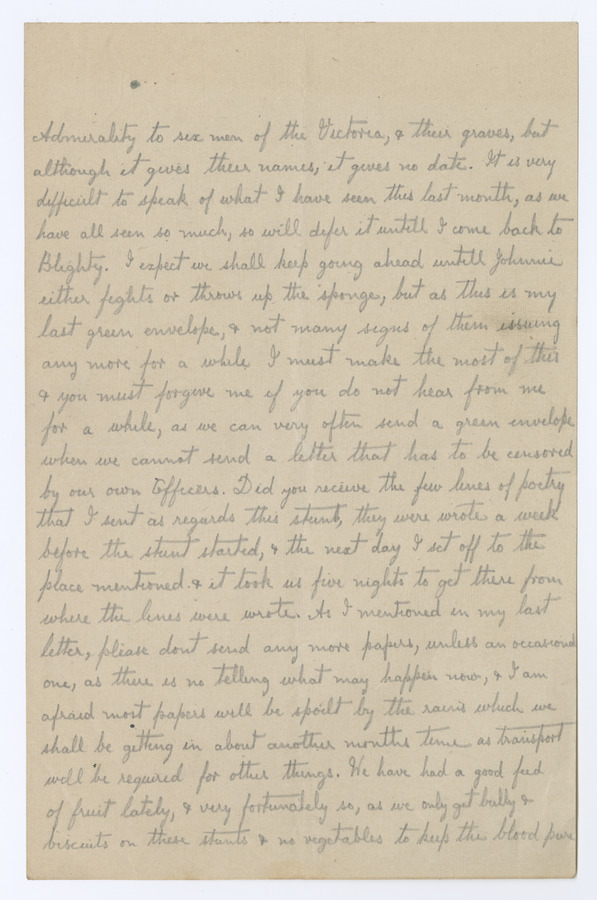 Admerality to six men of the Victoria, & their graves, but
although it gives their names, it gives no date. It is very
difficult to speak of what I have seen this last month, as we
have all seen so much, so will defer it untill I come back to
Blighty. I expect we shall keep going ahead untill Johnnie
either fights or throws up the sponge, but as this is my
last green envelope, & not many signs of them issuing
any more for a while I must make the most of this
& you must forgive me if you do not hear from me
for a while, as we can very often send a green envelope
when we cannot send a letter that has to be censored
by our own Officers. Did you receive the few lines of poetry
that I sent as regards this stunt, they were wrote a week
before the stunt started, & the next day I set off to the
place mentioned. & it took us five nights to get there from
where the lines were wrote. As I mentioned in my last
letter, please dont send any more papers, unless an occasional
one, as there is no telling what may happen now, & I am
afraid most papers will be spoilt by the rains which we
shall be getting in about another months time as transport
will be required for other things. We have had a good feed
of fruit lately, & very fortunately so, as we only get bully &
biscuits on these stunts & no vegetables to keep the blood pure